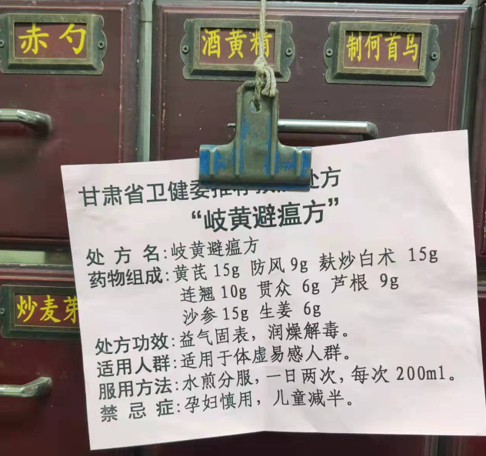 赤勺
酒黄精
制何首乌
甘肃省卫健委推荐 处方
“岐黄避瘟方”
处方名:岐黄避瘟方
药物组成:黄芪15g 防风9g 麸炒白术 15g
连翘10g 贯众 6g 芦根 9g
沙参15g 生姜 6g
处方功效:益气固表,润燥解毒。
适用人群:适用于体虚易感人群。
服用方法:水煎分服,一日两次,每次200ml。
禁忌症:孕妇慎用,儿童减半。
炒麦芽